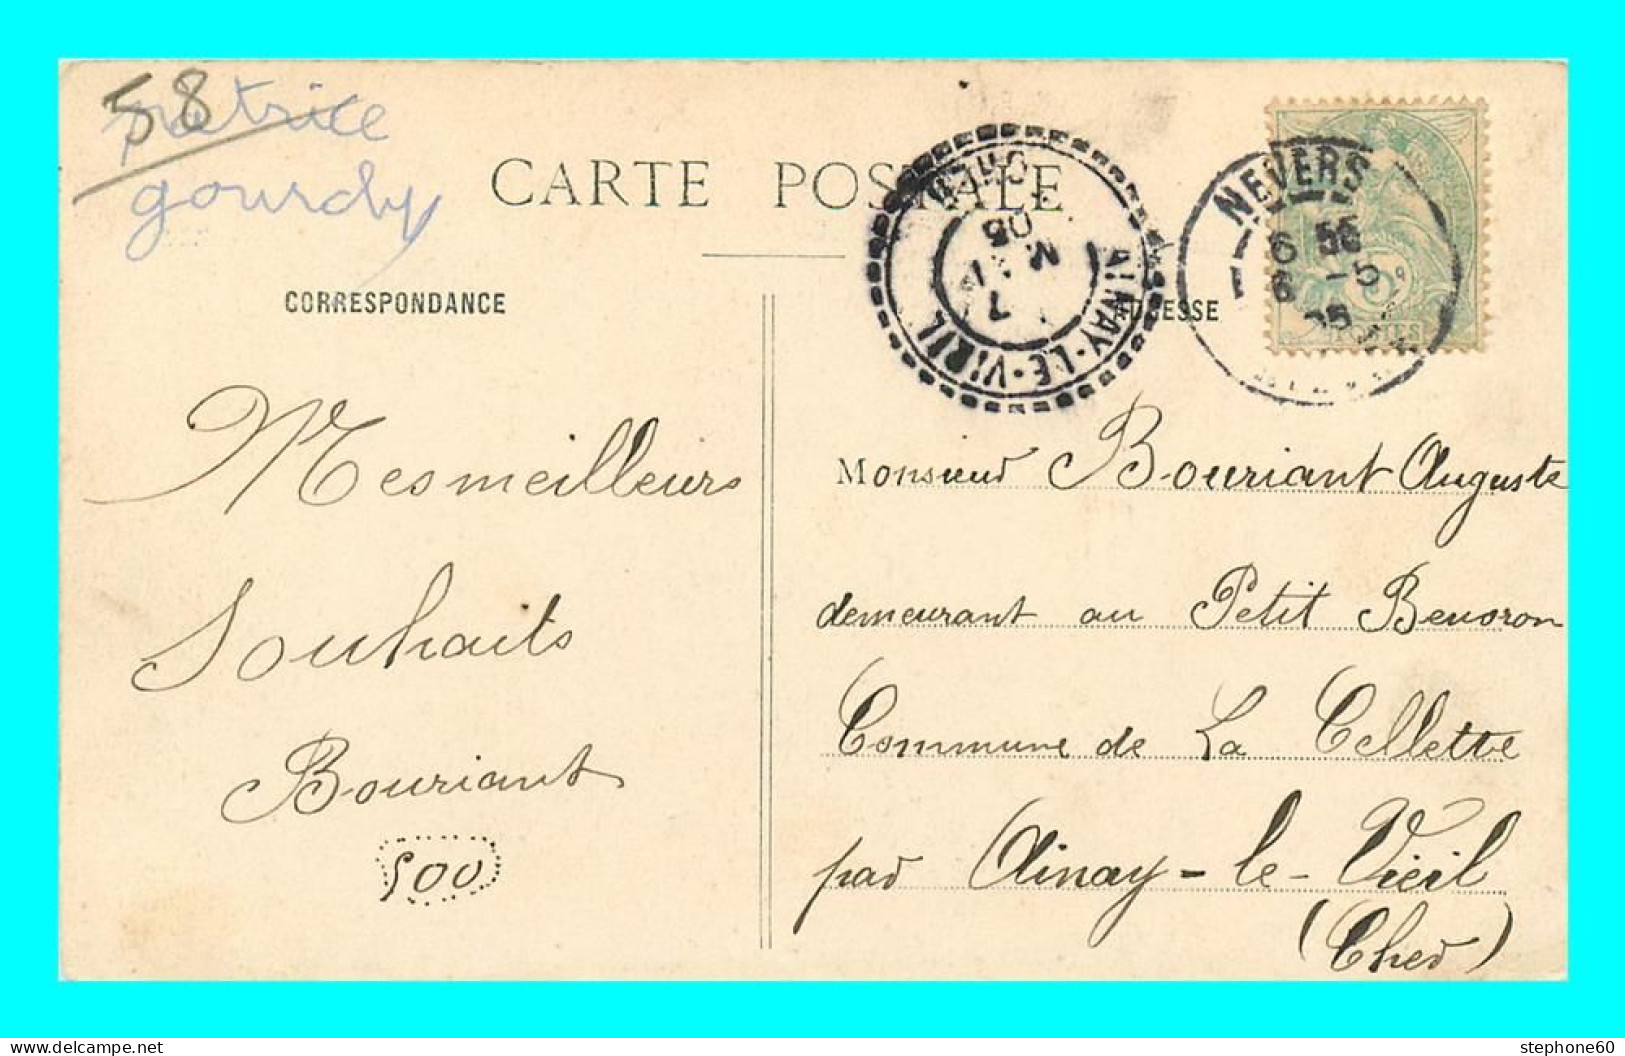 58
patrice
gourdy
CARTE POSTALE
CORRESPONDANCE
ADRESSE
CHER
AINAY-LE-VIEIL
7
05
NEVERS
6
6 -5
05
5
POSTES
Mes meilleurs
Souhaits
Bouriant
500
Monsieur Bouriant Auguste
demeurant au Petit
Commune de La Cellette
par Ainay-le-Vieil
(Cher)
stephone60